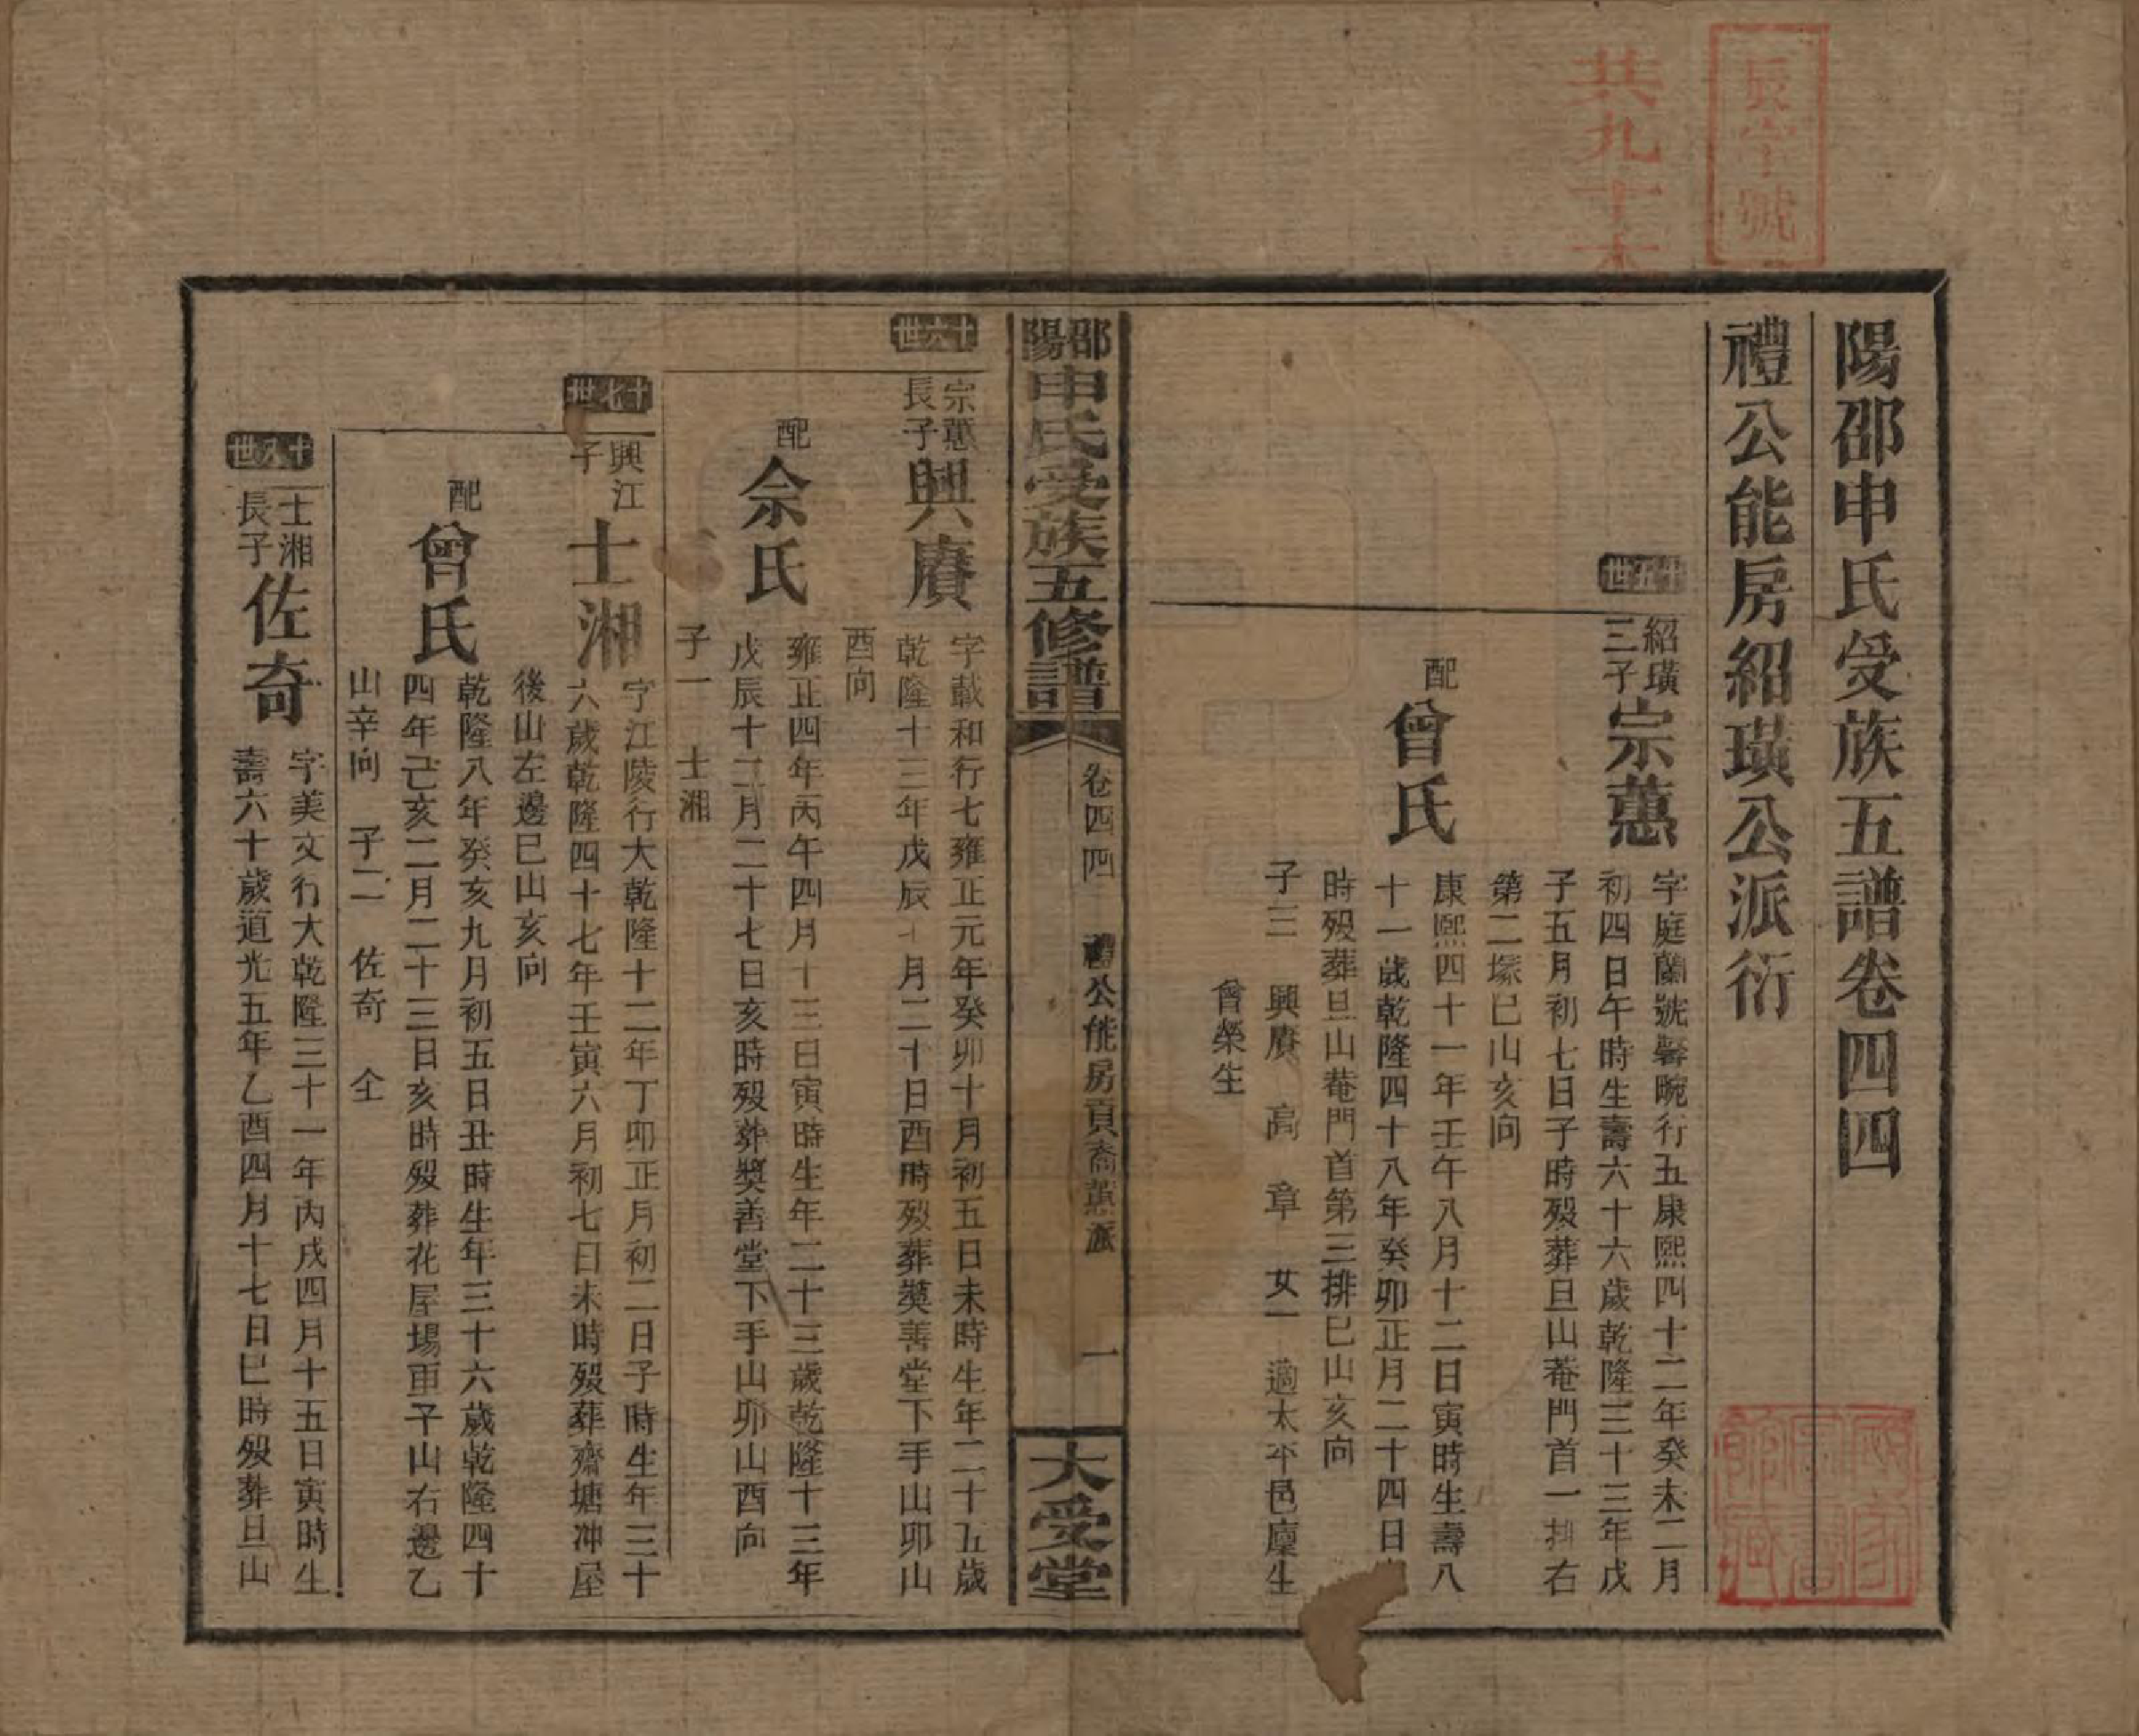 辰字號
共九十本
陽邵申氏受族五譜卷四四
禮公能房紹璜公派衍
十五世
紹璜三子
宗蕙
字庭蘭號馨畹行五康熙四十二年癸未二月
初四日午時生壽六十六歲乾隆三十三年戊
子五月初七日子時歿葬旦山菴門首一排右
第二塚巳山亥向
配
曾氏
康熙四十一年壬午八月十二日寅時生壽八
十一歲乾隆四十八年癸卯正月二十四日
時歿葬旦山菴門首第三排巳山亥向
子三 興賡 高 章 女一 適太平邑廩生
曾榮生
邵陽申氏受族五修譜
卷四四
禮公能房貢裔蕙派
一
大受堂
十六世
宗蕙長子
興賡
字載和行七雍正元年癸卯十月初五日未時生年二十五歲
乾隆十三年戊辰十月二十日酉時歿葬獎善堂下手山卯山
酉向
配
佘氏
雍正四年丙午四月十三日寅時生年二十三歲乾隆十三年
戊辰十二月二十七日亥時歿葬獎善堂下手山卯山酉向
子一 士湘
十七世
興江子
士湘
字江陵行大乾隆十二年丁卯正月初二日子時生年三十
六歲乾隆四十七年壬寅六月初七日未時歿葬齋塘冲屋
後山左邊巳山亥向
配
曾氏
乾隆八年癸亥九月初五日丑時生年三十六歲乾隆四十
四年己亥二月二十三日亥時歿葬花屋場車子山右邊乙
山辛向 子二 佐奇 仝
十八世
士湘長子
佐奇
字美文行大乾隆三十一年丙戌四月十五日寅時生
壽六十歲道光五年乙酉四月十七日巳時歿葬旦山